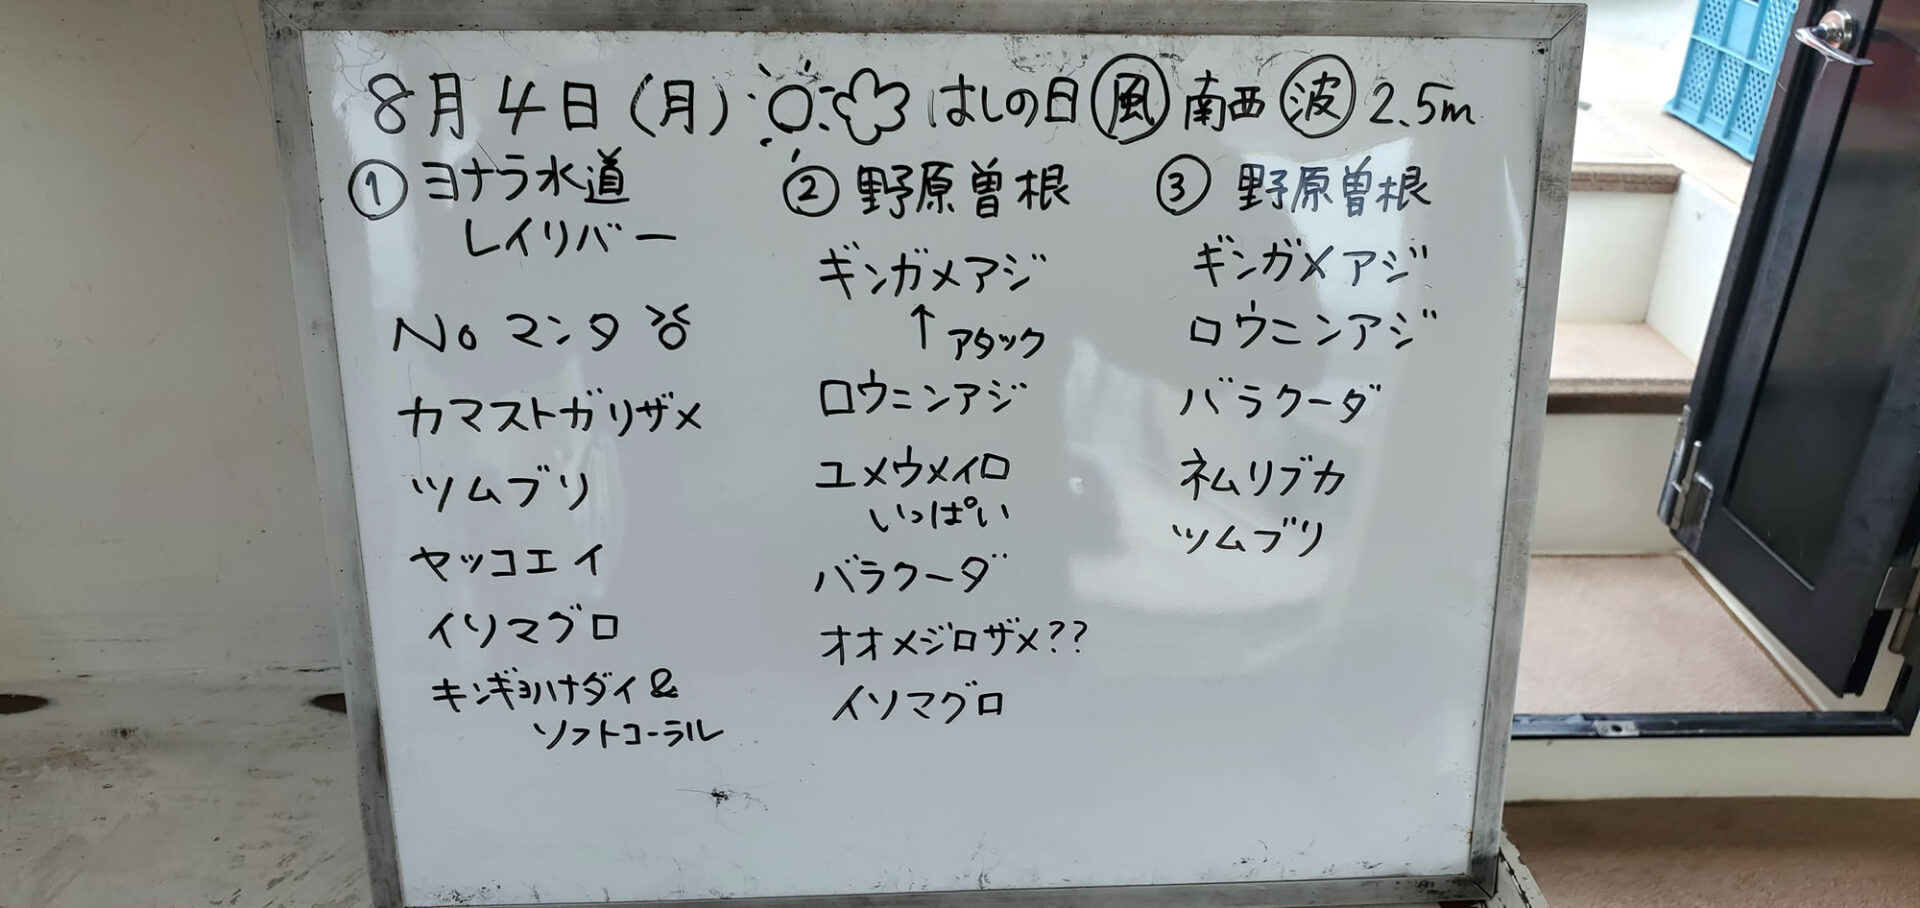 8月4日(月) はしの日 風 南西 波 2.5m
① ヨナラ水道
レイリバー
No マンタ
カマストガリザメ
ツムブリ
ヤッコエイ
イソマグロ
キンギョハナダイ &
ソフトコーラル
② 野原曽根
ギンガメアジ
↑ アタック
ロウニンアジ
ユメウメイロ
いっぱい
バラクーダ
オオメジロザメ??
イソマグロ
③ 野原曽根
ギンガメアジ
ロウニンアジ
バラクーダ
ネムリブカ
ツムブリ